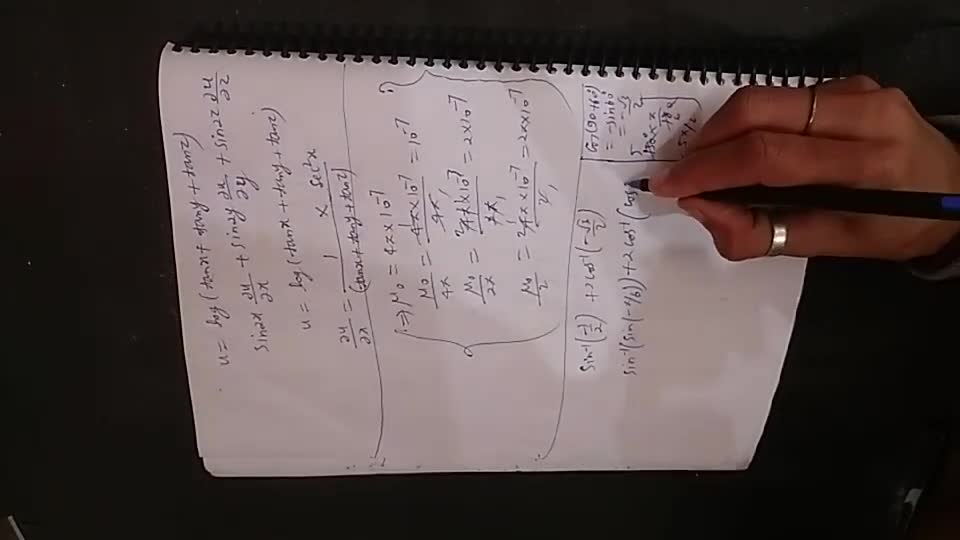 u = log (tanx + tany + tanz)
sin2x ∂u/∂x + sin2y ∂u/∂y + sin2z ∂u/∂z
u = log (tanx + tany + tanz)
∂u/∂x = 1/(tanx + tany + tanz) × sec²x
1 ⇒ μ0 = 4π×10⁻⁷
μ0/4π = 4π×10⁻⁷/4π = 10⁻⁷
μ0/2π = 4π×10⁻⁷/2π = 2×10⁻⁷
μ0/2 = 4π×10⁻⁷/2 = 2π×10⁻⁷
cos(90+60)
= -sin60
= -√3/2
5π/6
sin⁻¹(-1/2) + 2cos⁻¹(-√3/2)
sin⁻¹(sin(-π/6)) + 2cos⁻¹(cos